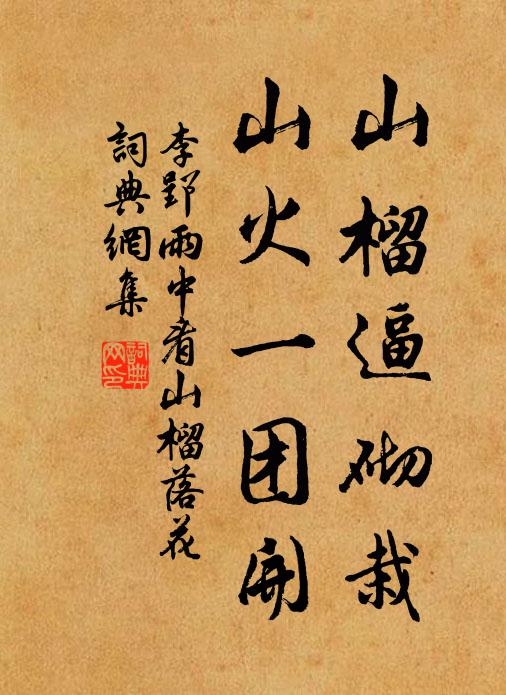 山榴逼砌栽
山火一团開
李郢雨中看山榴落花
詞典網集
詞典
网印